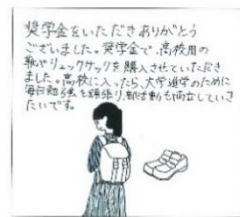 奨学金をいただきありがとう
ございました。奨学金で、高校用の
靴やリュックサックを購入させていただき
ました。高校に入ったら、大学進学のために
毎日勉強も頑張り、部活動も両立していき
たいです。